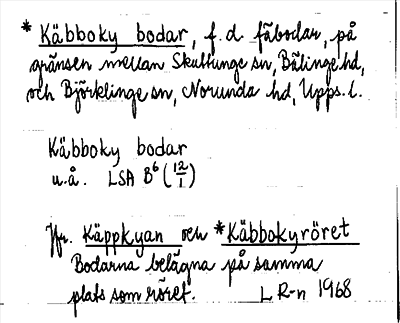 * Käbboky bodar, f.d. fäbodar, på
gränsen mellan Skuttunge sn, Bälinge hd,
och Björklinge sn, Norunda hd, Upps. l.
Käbboky bodar
u.å. LSA B6 (12/1)
Jfr. Käppkyan och *Käbbokyröret
Bodarna belägna på samma
plats som röret. L R-n 1968